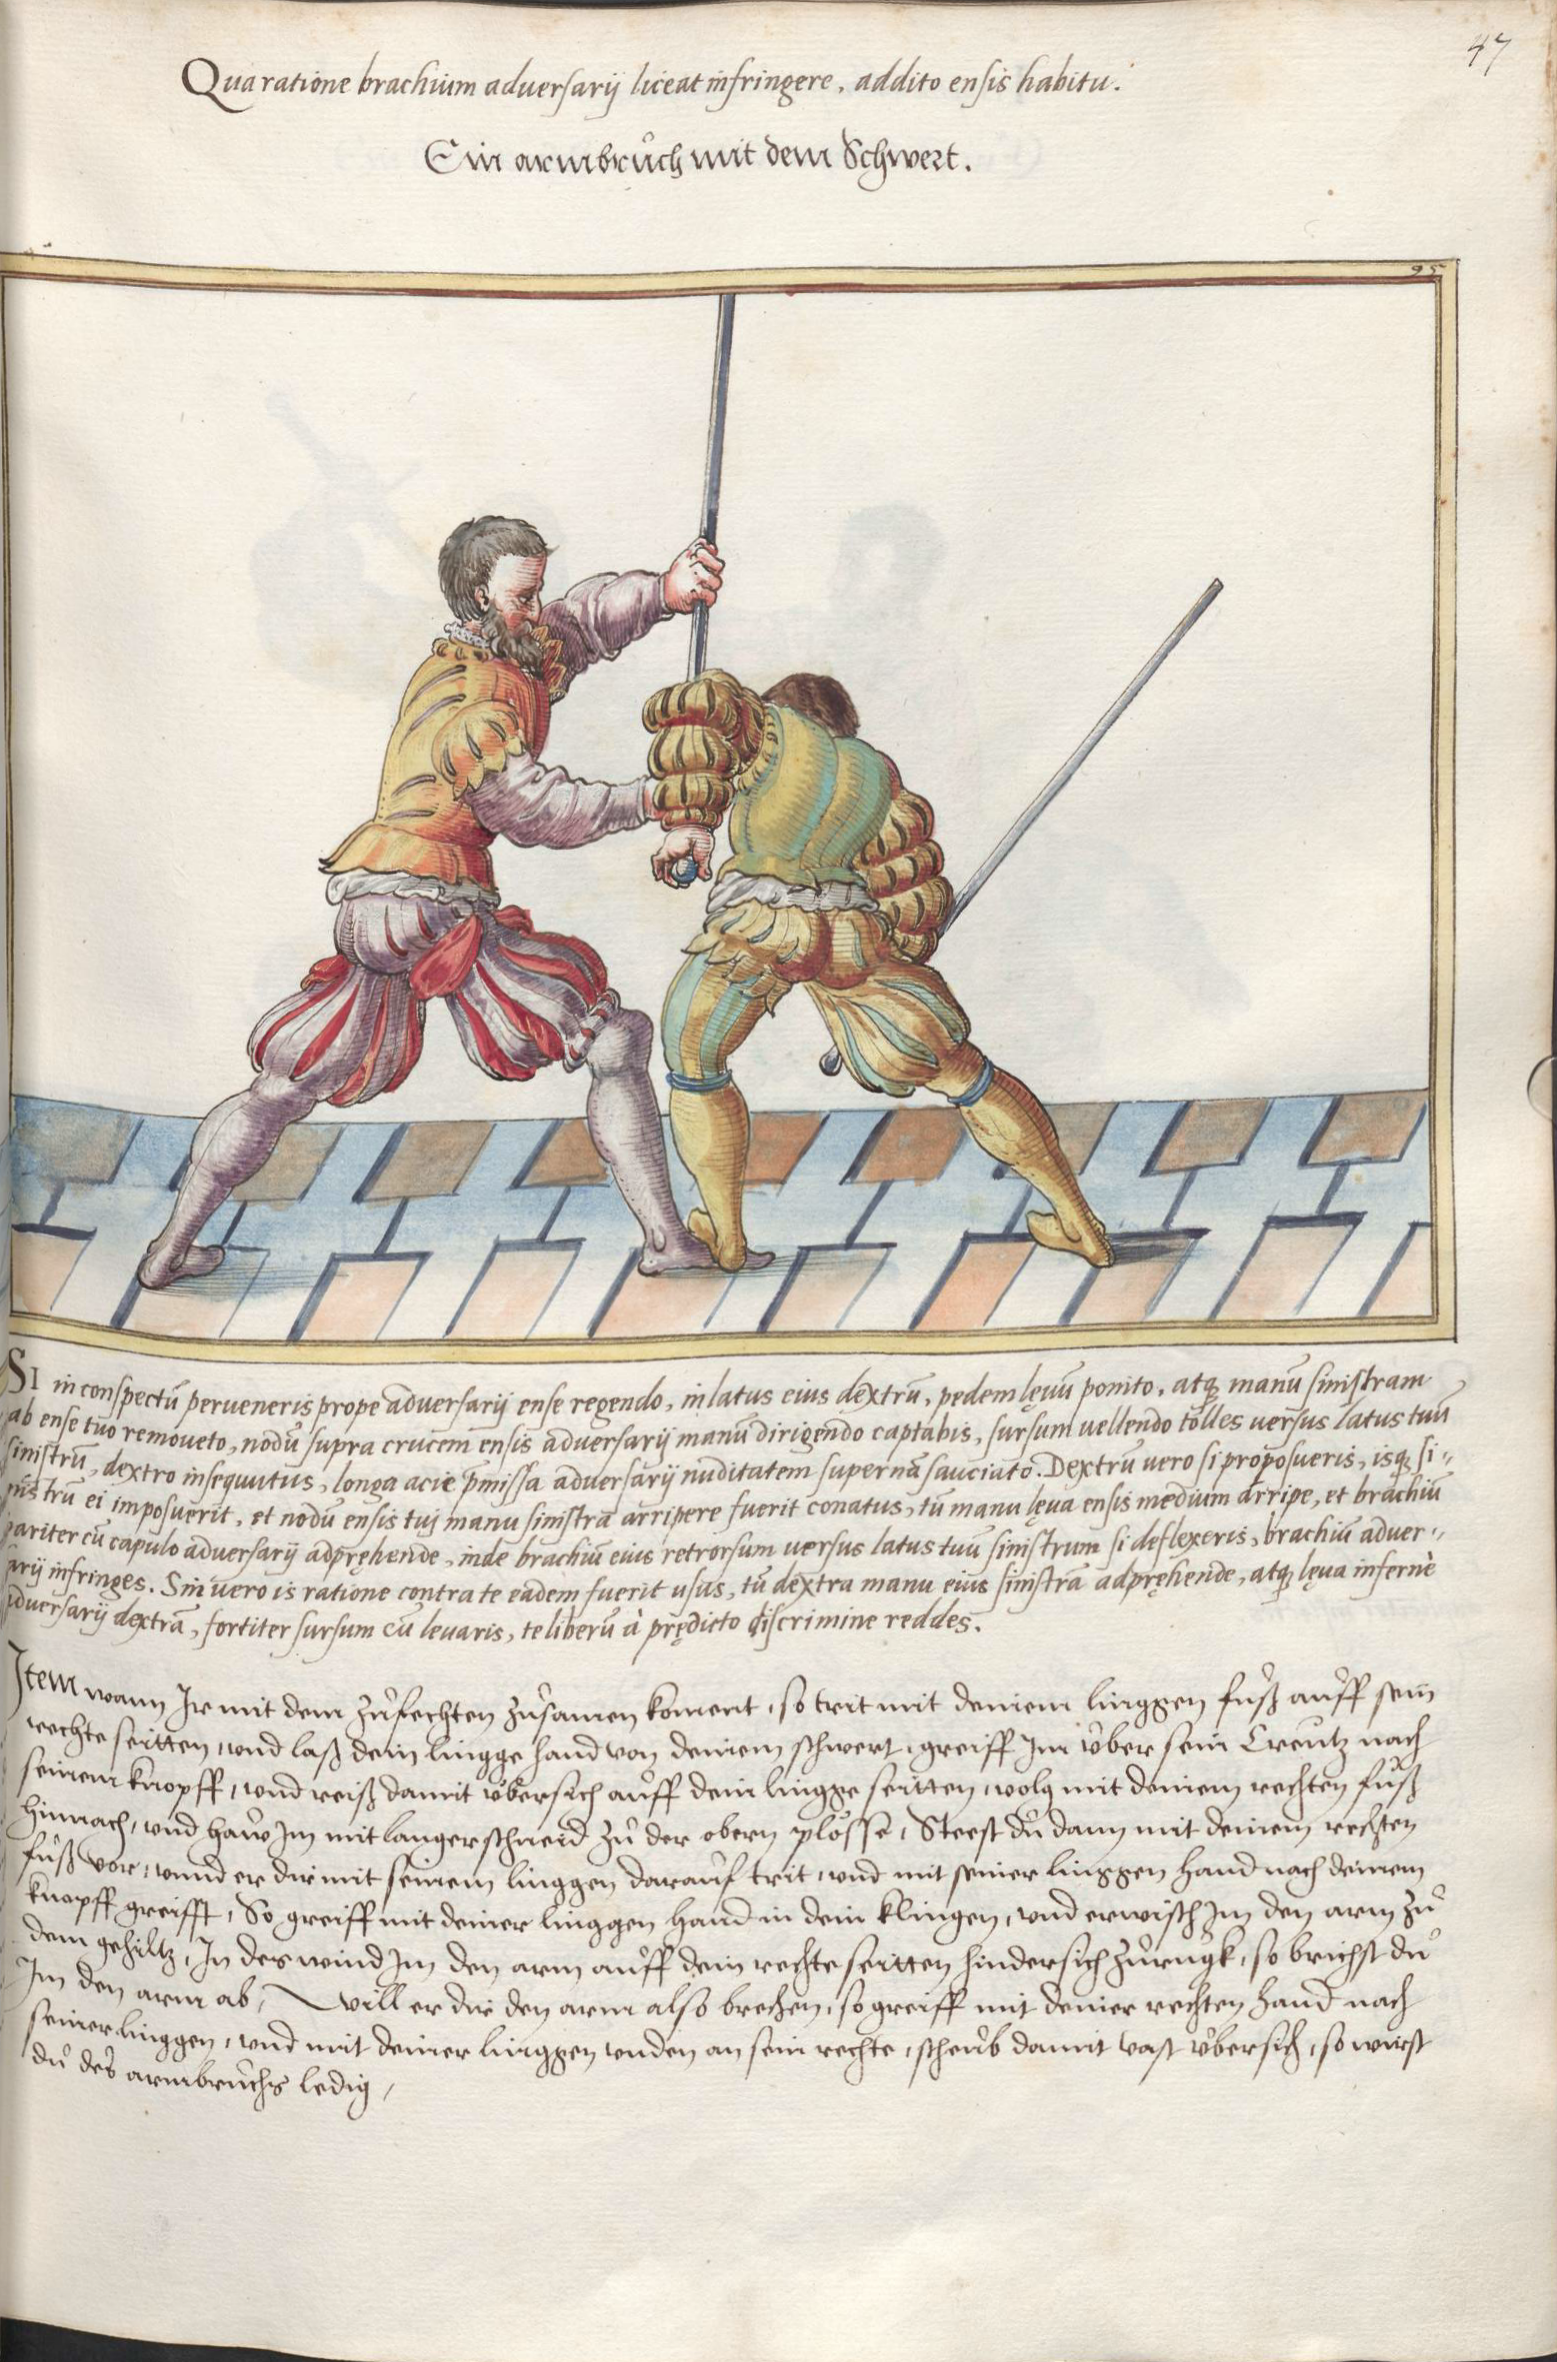 47
Qua ratione brachium adversarij liceat infringere, addito ensis habitu.
Ein armbrůch mit dem Schwert.
95
SI in conspectũ perveneris prope adversarij ense regendo, in latus eius dextrũ, pedem lęvũ ponito, atq; manũ sinistram
ab ense tuo removeto, nodũ supra crucem ensis adversarij manũ dirigendo captabis, sursum vellendo tolles versus latus tuũ
sinistrũ, dextro insequutus, longa acie p̃missa adversarij nuditatem supernã sauciato. Dextrũ vero si proposueris, isq; si-
nistrũ ei imposuerit, et nodũ ensis tui manu sinistra arripere fuerit conatus, tũ manu lęva ensis medium arripe, et brachiũ
pariter cũ capulo adversarij adpręhende, inde brachiũ eius retrorsum versus latus tuũ sinistrum si deflexeris, brachiũ adver-
sarij infringes. Sin vero is ratione contra te eadem fuerit usus, tũ dextra manu eius sinistrã adpręhende, atq; lęva infernè
adversarij dextrã, fortiter sursum cũ levaris, te liberũ à prędicto discrimine reddes.
Item wann Ir mit dem zůfechten zůsamen koment, so trit mit deinem linggen fůß aůff sein
rechte seitten, und laß dein lingge hand von deinem schwert, greiff Im ůber sein Creutz nach
seinem knopff, und reiß damit ůbersich aůff dein lingge seitten, volg mit deinem rechten fůß
hinnach, und haůw Im mit langer schneid zů der obern plösse, Steest dů dann mit deinem rechten
fůß vor, unnd er dir mit seinem linggen daraůf trit, und mit seiner linggen hand nach deinem
knopff greifft, So greiff mit deiner linggen hand in dein klingen, und erwisch Im den arm zů
dem gehiltz, In des wind Im den arm aůff dein rechte seitten hindersich zůrugk, so brichst dů
Im den arm ab, Will er dir den arm also brechen, so greiff mit deiner rechten hand nach
seiner linggen, und mit deiner linggen unden an sein rechte, scheůb damit vast ůbersich, so wirst
dů des armbrůchs ledig,